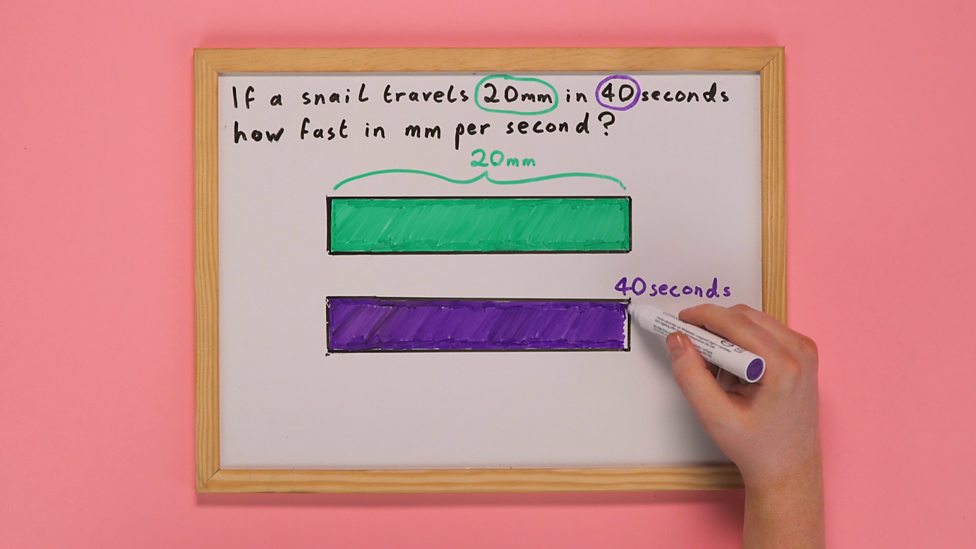 If a snail travels 20mm in 40 seconds
how fast in mm per second?
20mm
40 seconds